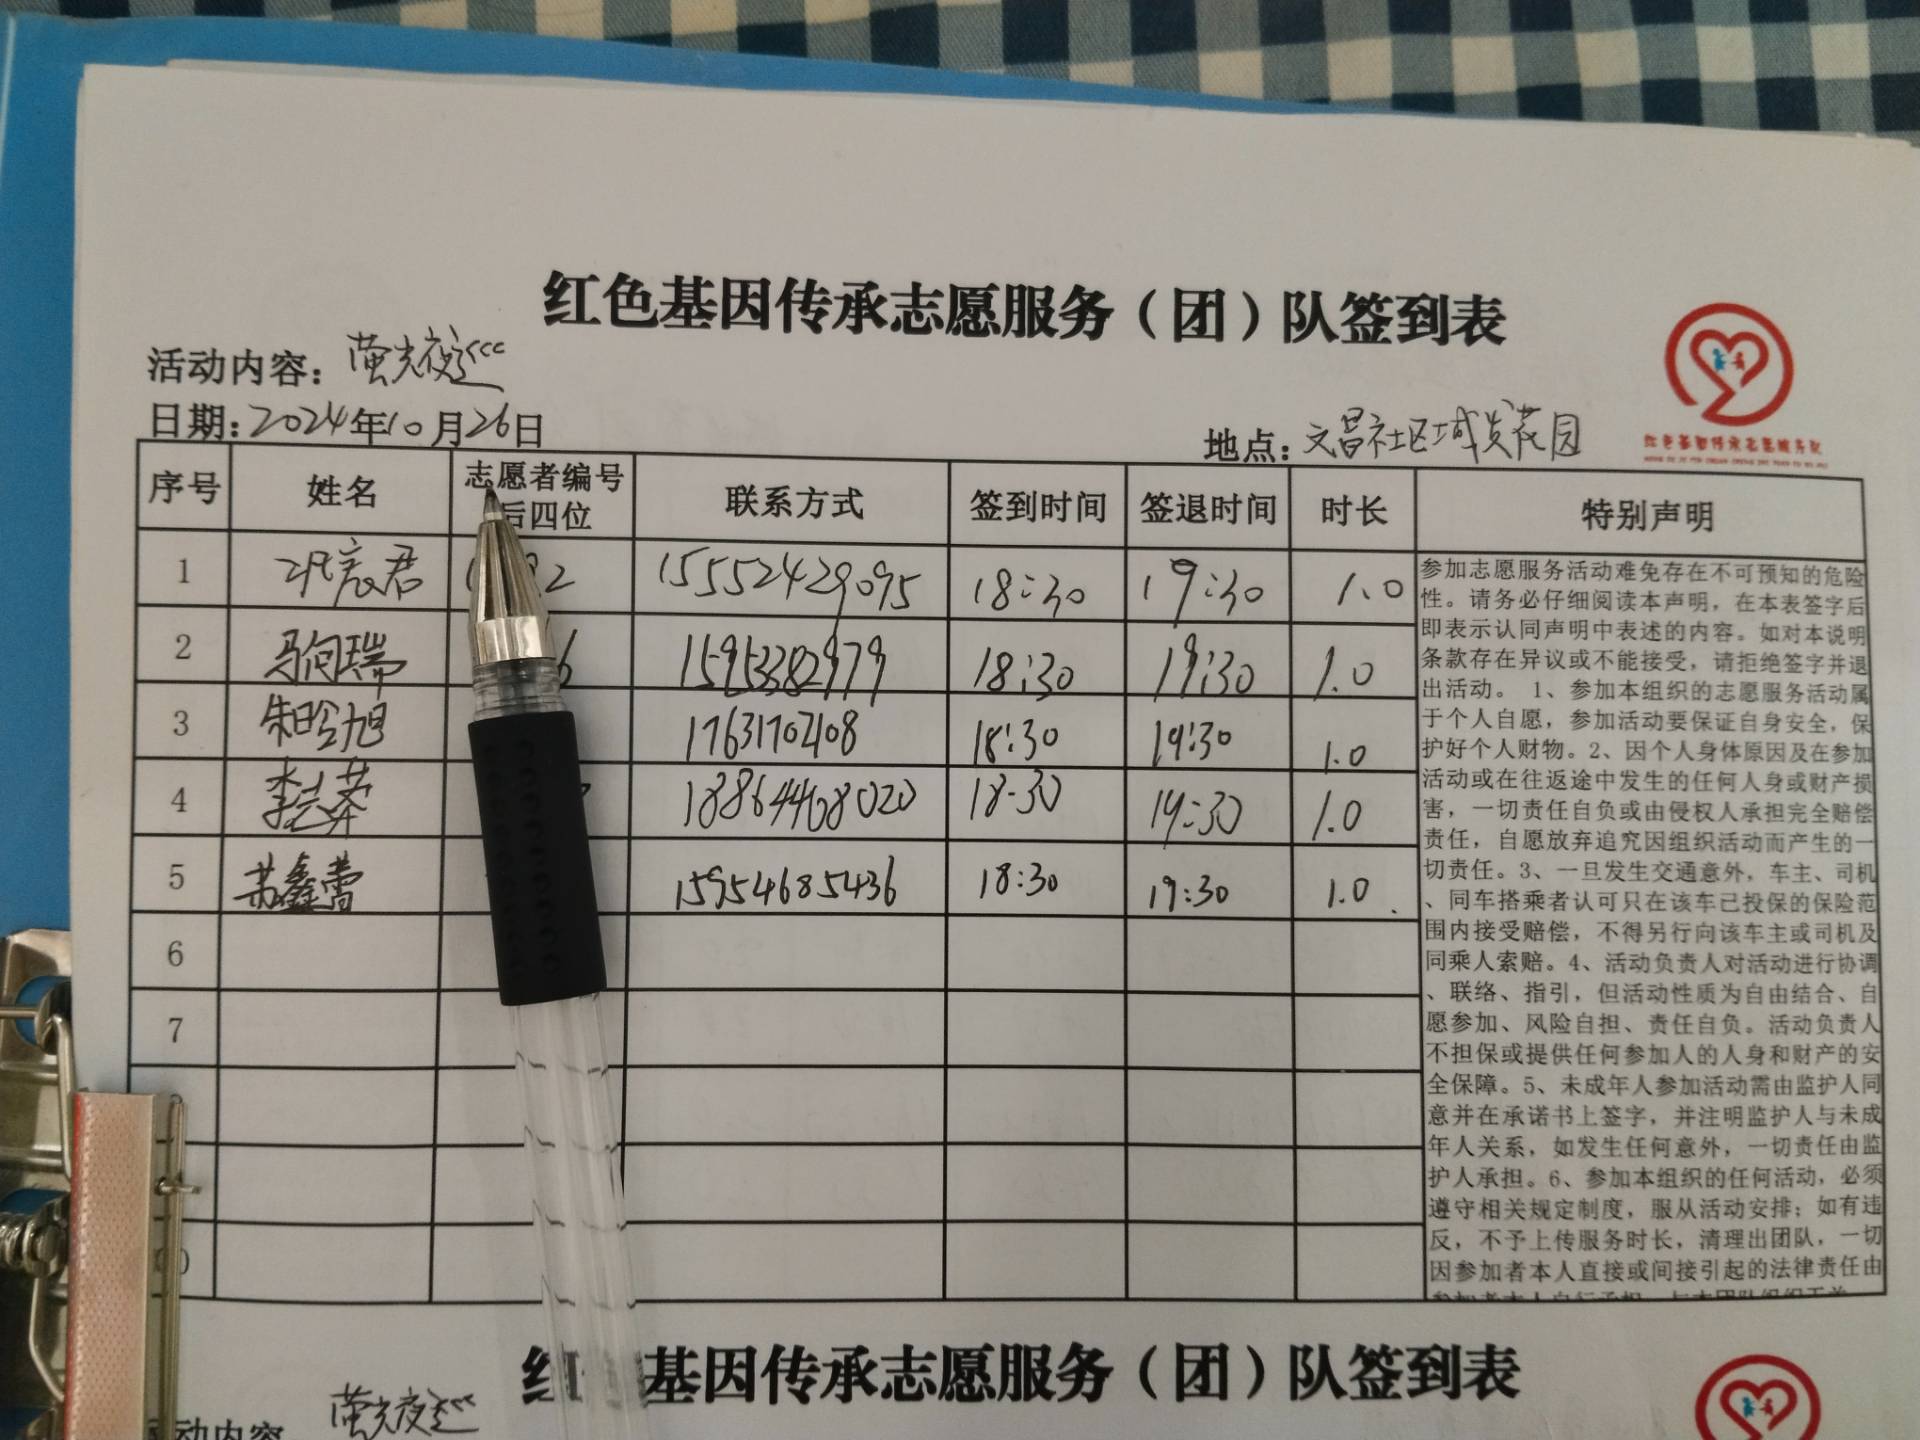 红色基因传承志愿服务（团）队签到表
活动内容：萤光夜巡
日期：2024年10月26日
地点：文昌社区域发花园
红色基因传承志愿服务队
序号 姓名 志愿者编号后四位 联系方式 签到时间 签退时间 时长 特别声明
1 15552429095 18:30 19:30 1.0
2 马向瑞 15953382979 18:30 19:30 1.0
3 朱晗旭 17631702108 18:30 19:30 1.0
4 李志莽 18864468020 18:30 19:30 1.0
5 苏鑫蕾 15954685436 18:30 19:30 1.0
6
7
参加志愿服务活动难免存在不可预知的危险
性。请务必仔细阅读本声明，在本表签字后
即表示认同声明中表述的内容。如对本说明
条款存在异议或不能接受，请拒绝签字并退
出活动。 1、参加本组织的志愿服务活动属
于个人自愿，参加活动要保证自身安全，保
护好个人财物。2、因个人身体原因及在参加
活动或在往返途中发生的任何人身或财产损
害，一切责任自负或由侵权人承担完全赔偿
责任，自愿放弃追究因组织活动而产生的一
切责任。3、一旦发生交通意外，车主、司机
、同车搭乘者认可只在该车已投保的保险范
围内接受赔偿，不得另行向该车主或司机及
同乘人索赔。4、活动负责人对活动进行协调
、联络、指引，但活动性质为自由结合、自
愿参加、风险自担、责任自负。活动负责人
不担保或提供任何参加人的人身和财产的安
全保障。5、未成年人参加活动需由监护人同
意并在承诺书上签字，并注明监护人与未成
年人关系，如发生任何意外，一切责任由监
护人承担。6、参加本组织的任何活动，必须
遵守相关规定制度，服从活动安排；如有违
反，不予上传服务时长，清理出团队，一切
因参加者本人直接或间接引起的法律责任由
红色基因传承志愿服务（团）队签到表
动内容 萤光夜巡